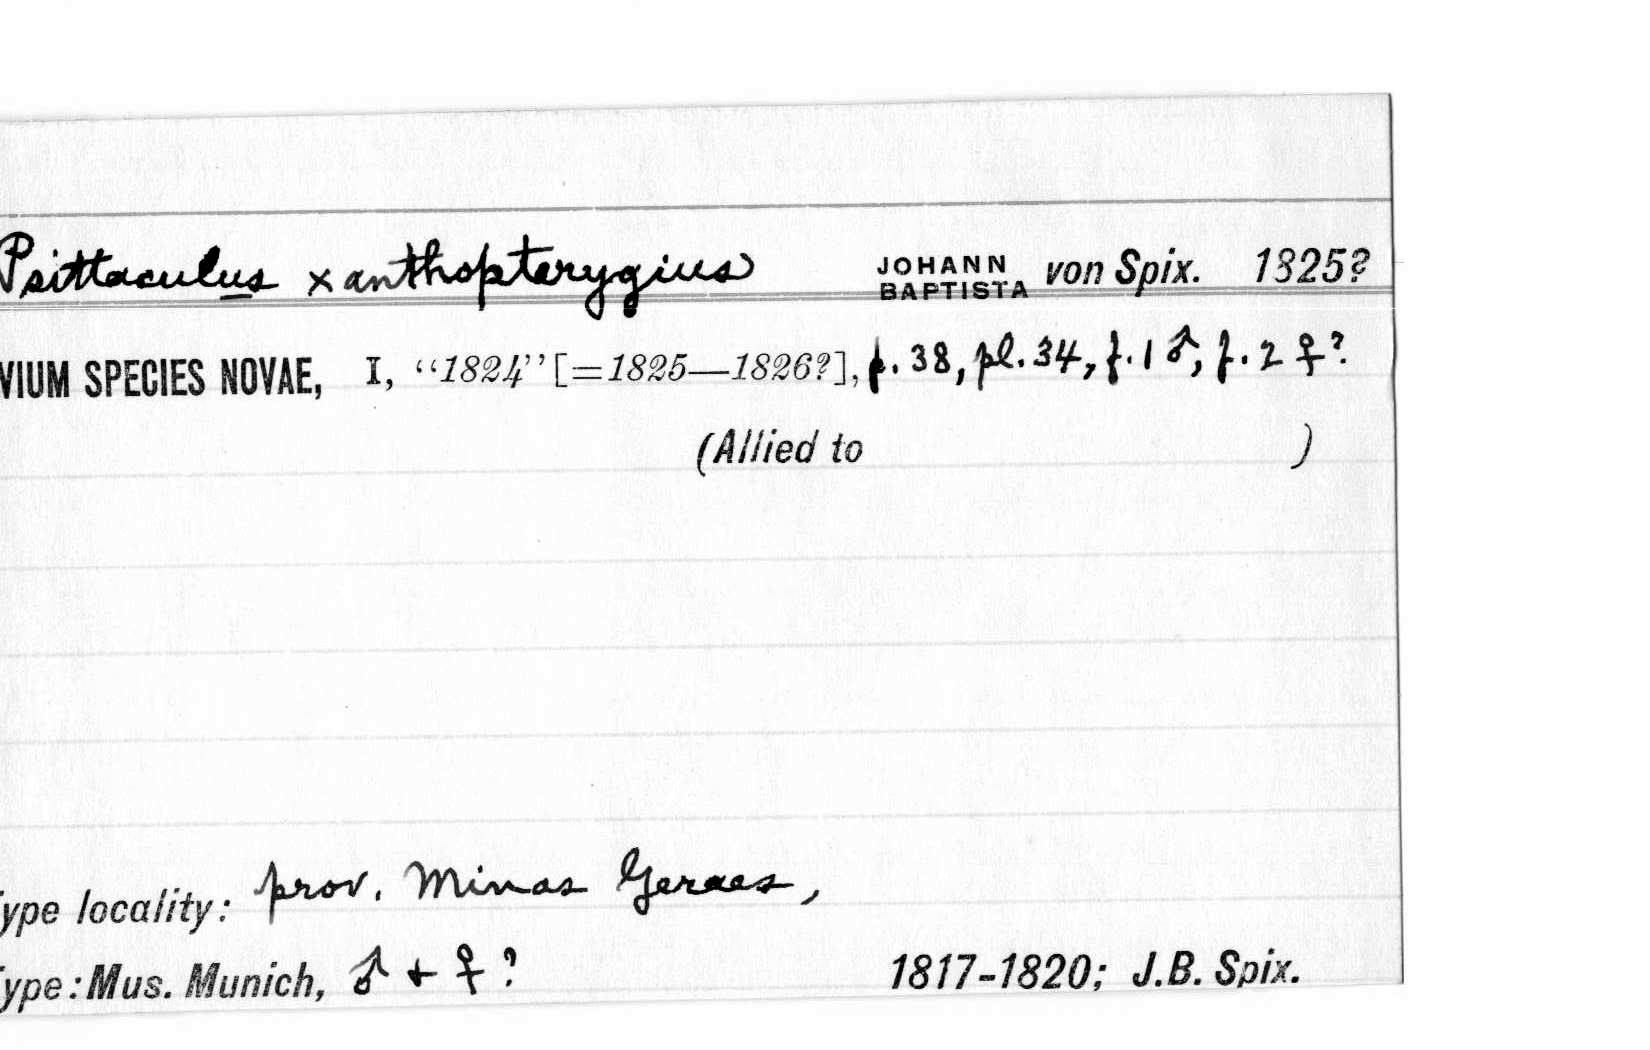 Psittaculus xanthopterygius JOHANN BAPTISTA von Spix. 1825?
VIUM SPECIES NOVAE, I, “1824” [=1825—1826?], p. 38, pl. 34, f. 1 ♂, f. 2 ♀?
(Allied to )
ype locality: prov. Minas Geraes,
ype: Mus. Munich, ♂ + ♀ ? 1817-1820; J.B. Spix.